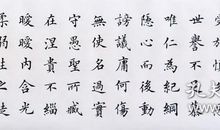 世譽不
唯仁為紀綱
隱心而後動
謗議庸何傷
無使名過實
守愚聖所臧
在涅貴不緇
曖曖內含光
柔弱生之徒
孔夫